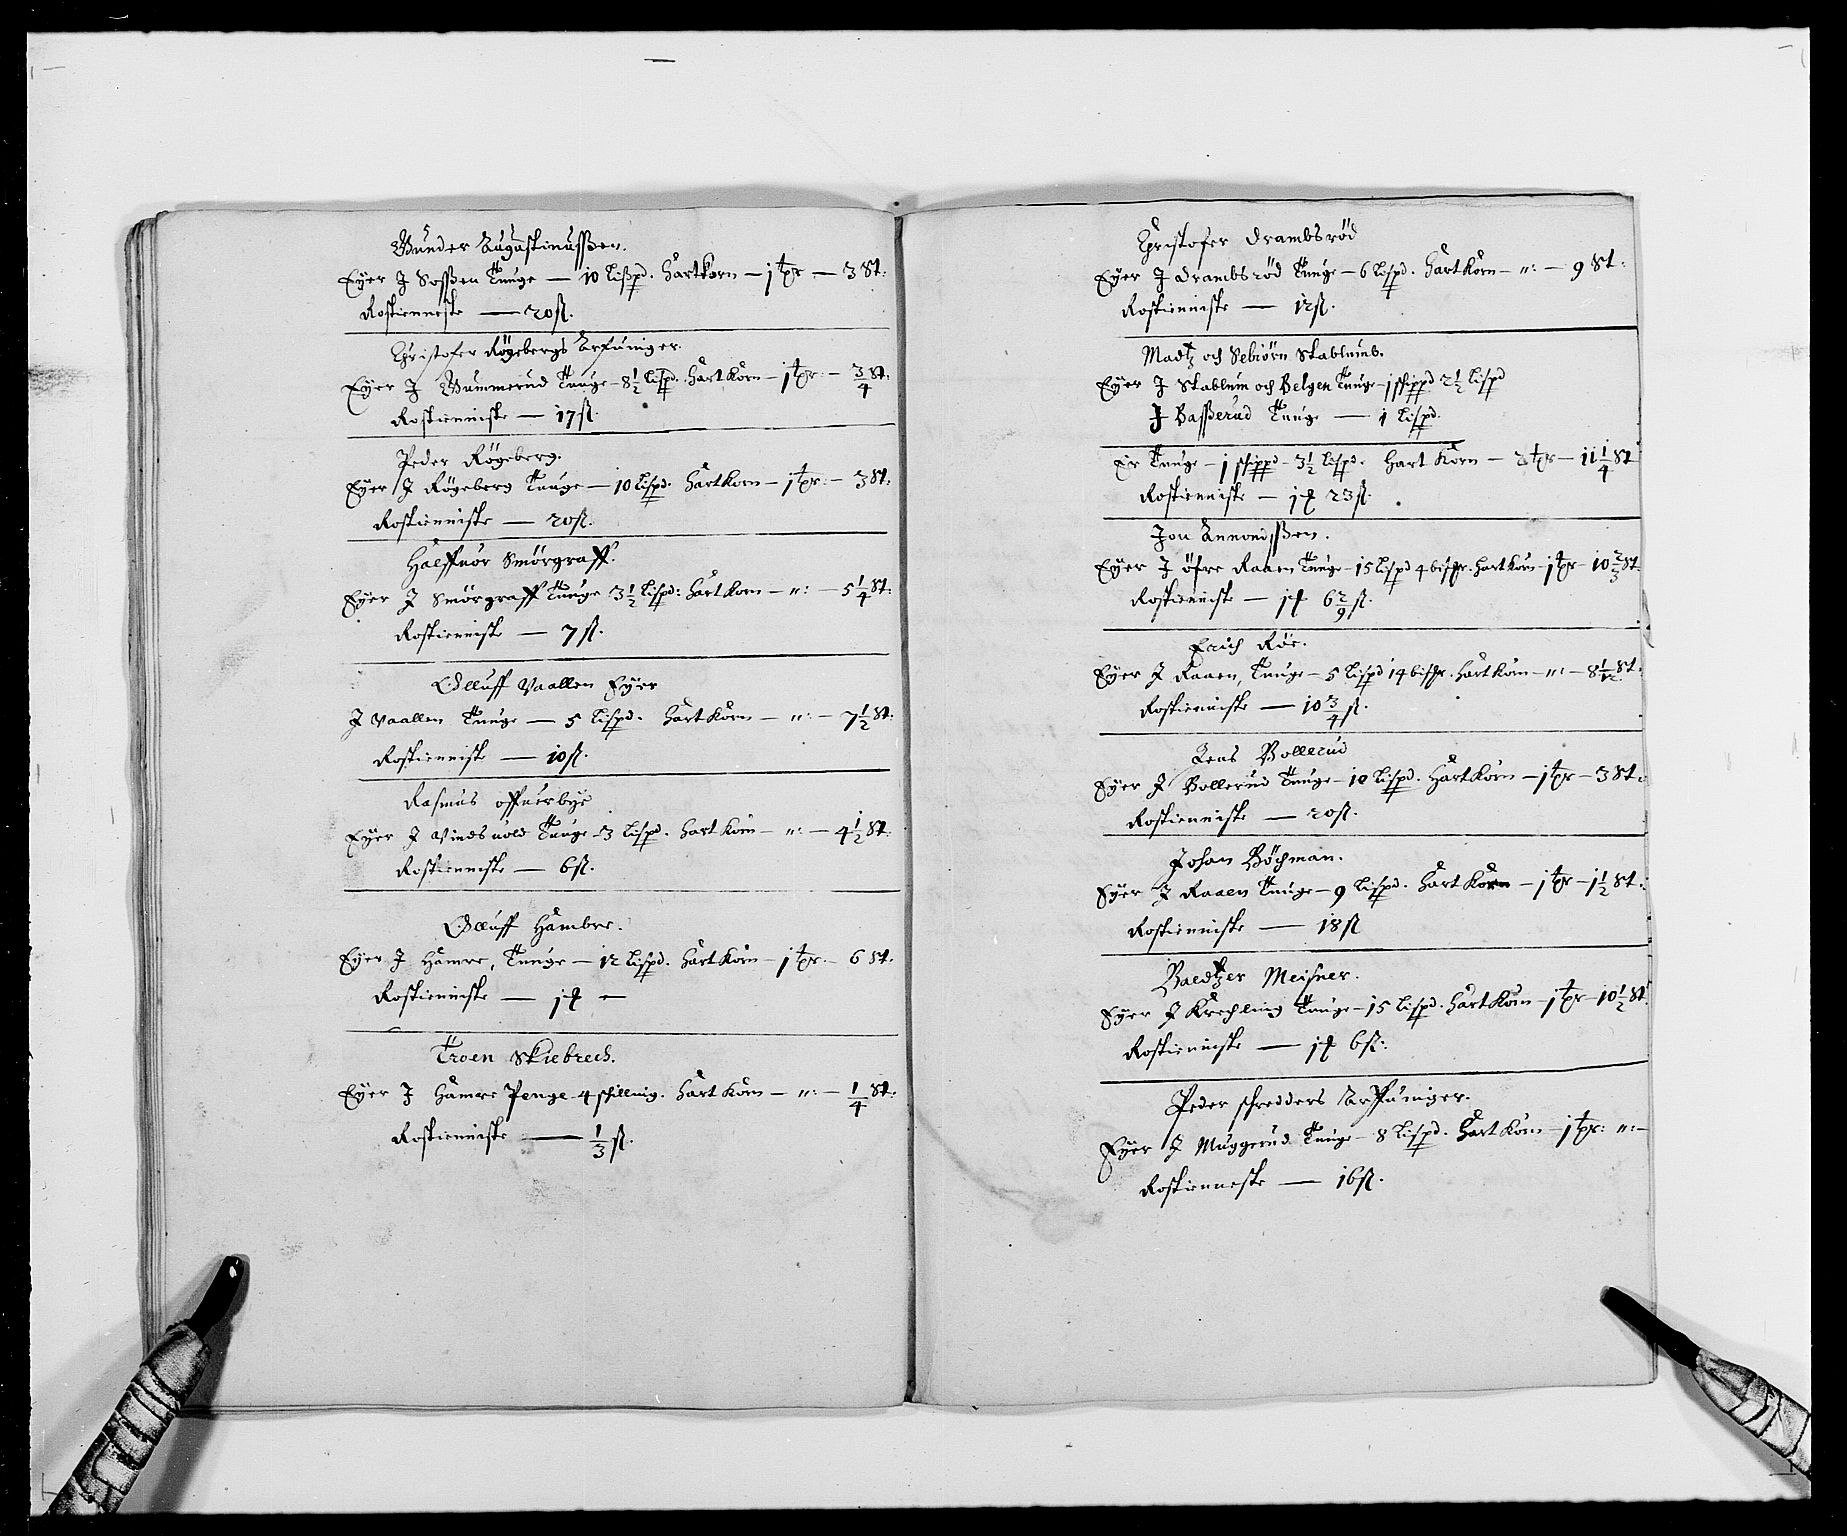 Gunder Augustinussßen.
Eyer J Soßen Tunge — 10 Lißpd. Hartkorn — 1 tr — 3 St:
Rostienniste — 20 sl.
Christofer Røgebergs Arfuinger.
Eyer J Gummerud Tunge — 8½ lispd. Hart Korn — 1 tr: — ¾ St:
Rostienniste — 17 sl.
Peder Røgeberg.
Eyer J Røgeberg Tunge — 10 lispd. Hart Korn — 1 tr: — 3 St:
Rostienniste — 20 sl.
Halffuor Smörgraff.
Eyer J Smörgraff Tunge 3½ lispd: Hart Korn — ": — 5¼ St:
Rostienniste — 7 sl.
Olluff Vaallen Eyer
J Vaallen Tunge — 5 lispd. Hart Korn — ": — 7½ St:
Rostienniste — 10 sl.
Rasmus offuerbye
Eyer J Vindsuold Tunge — 3 lispd. Hart Korn — ": — 4½ St.
Rostienniste — 6 sl.
Olluff Hambre.
Eyer J Hamre, Tunge — 12 lispd. Hart Korn — 1 tr. — 6 St.
Rostienniste — 1 ꝼ —
Troen Skiebrech.
Eyer J Hamre Penge 4 skilling. Hart Korn — ": — ¼ St:
Rostienniste — ⅓ sl.
Christofer Drambsrød
Eyer J Drambsrød Tunge — 6 lispd. Hart Korn — ": — 9 St:
Rostienniste — 12 sl.
Madtz och Sebiörn Stablum.
Eyer J Stablum och Belgen Tunge — 1 skippd 2½ lispd
J Baßerud Tunge — 1 lispd.
Er Tunge — 1 skippd — 3½ lispd. Hart Korn — 3 tr — 11¼ St
Rostienniste — 1 ꝼ 23 sl.
Jon Amondßen.
Eyer J öfre Raaen Tunge — 15 lispd 4 bismr. Hart Korn — 1 tr — 10⅔ St.
Rostienniste — 1 ꝼ 6 2/9 sl.
Erich Röe.
Eyer J Raaen, Tunge — 5 lispd 14 bismr. Hart Korn — ": — 8 1/12 St.
Rostienniste — 10¾ sl.
Jens Bollerud
Eyer J Bollerud Tunge — 10 lispd. Hart Korn — 1 tr — 3 St:
Rostienniste — 20 sl.
Johan Böchman.
Eyer J Raaen Tunge — 9 lispd. Hart Korn — 1 tr — 1½ St:
Rostienniste — 18 sl
Baldtzer Meisner.
Eyer J Krechling Tunge — 15 lispd. Hart Korn — 1 tr — 10½ St.
Rostienniste — 1 ꝼ 6 sl:
Peder schredders Arffuinger.
Eyer J Muggerud Tunge — 8 lispd. Hart Korn — 1 tr: ": —
Rostienneste — 16 sl.